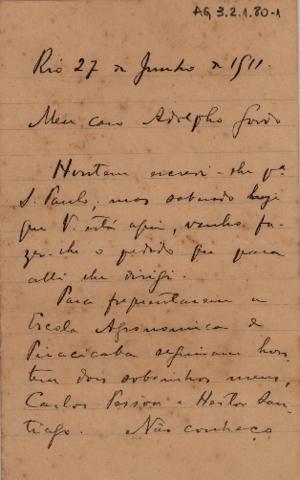 AG 3.2.1.80-1
Rio 27 de Junho de 1911.
Meu caro Adolpho Gordo
Hontem escrevi-lhe pª
S. Paulo, mas sabendo hoje
que V. está aqui, venho fa-
zer-lhe o pedido que para
alli lhe dirigi.
Para frequentarem a
Escola Agronomica de
Piracicaba seguiram hon-
tem dois sobrinhos meus,
Carlos Pessoa e Heitor San-
tiago. Não conheço